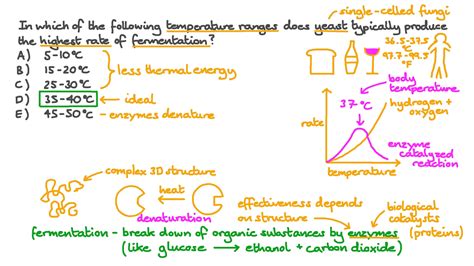 single-celled fungi
In which of the following temperature ranges does yeast typically produce
the highest rate of fermentation?
A) 5-10°C
B) 15-20°C
C) 25-30°C
less thermal energy
D) 35-40°C ← ideal
E) 45-50°C - enzymes denature
36.5-37.5
°C
97.7-99.5
°F
body
temperature
37°C
hydrogen +
oxygen
rate
enzyme
catalyzed
reaction
temperature
complex 3D structure
heat
denaturation
effectiveness depends
on structure
biological
catalysts
(proteins)
fermentation - break down of organic substances by enzymes
(like glucose → ethanol + carbon dioxide)